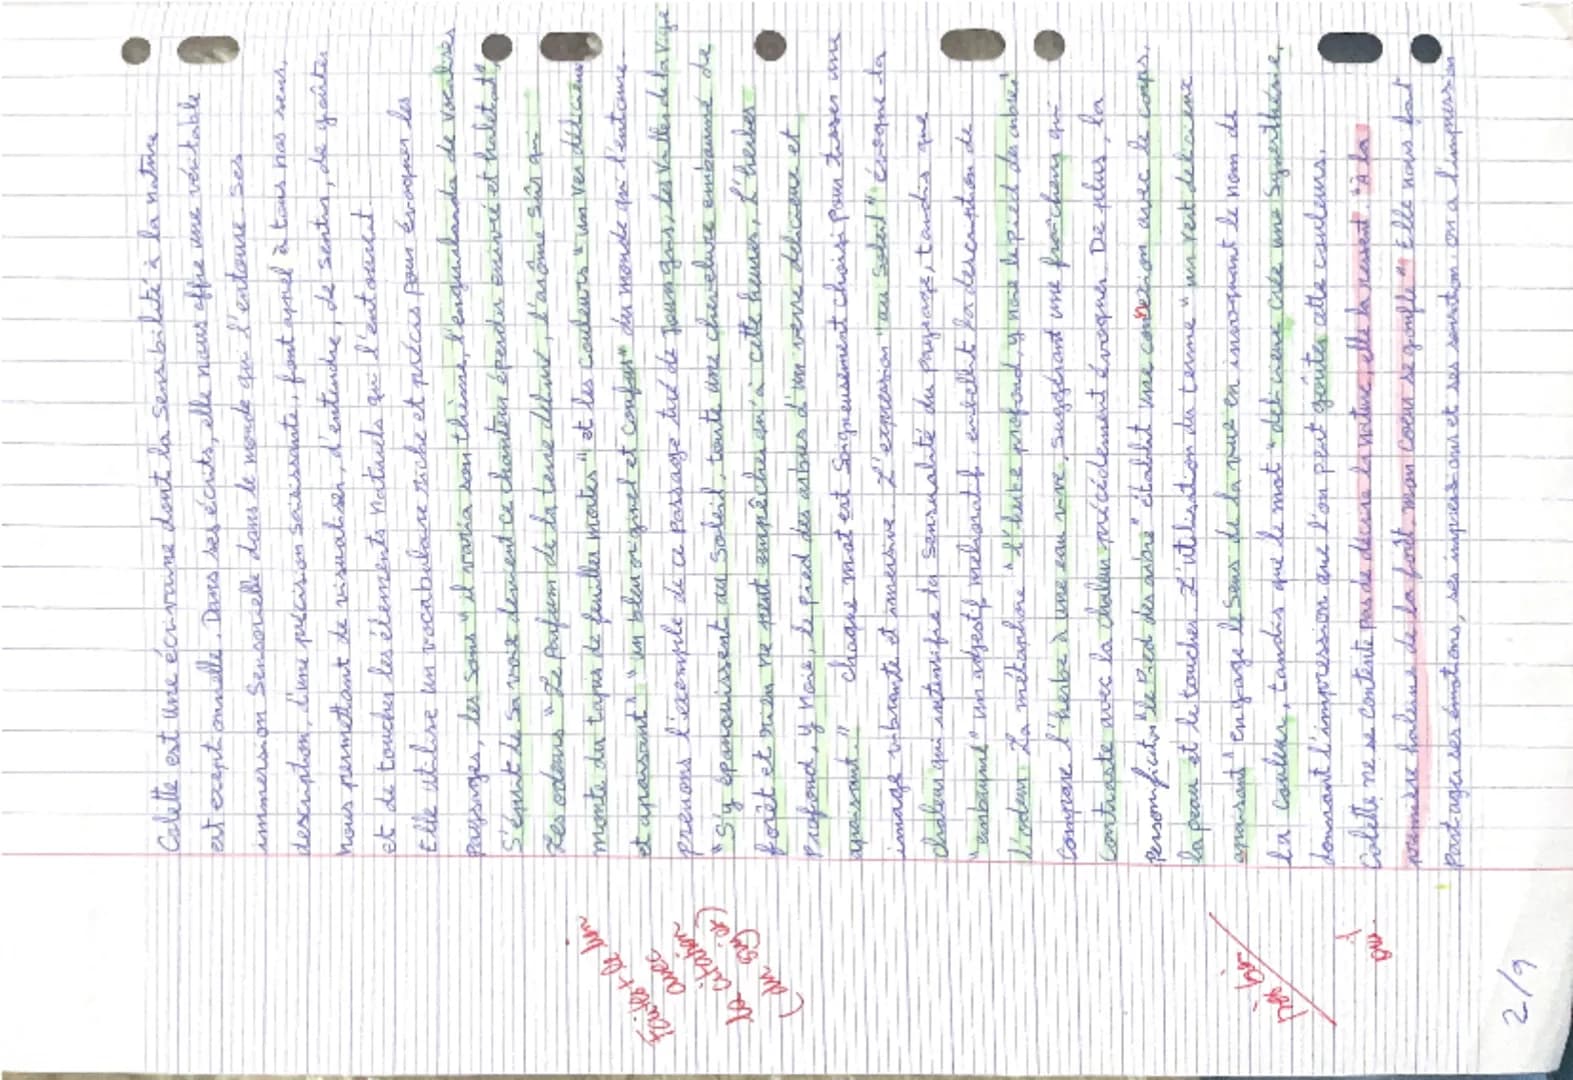 Colette est une écrivaine dont la sensibilité à la nature
est exceptionnelle. Dans ses écrits, elle nous offre une véritable
immersion sensorielle dans le monde qui l'entoure ses
description, d'une précision saisissante, font appel à tous nos sens,
nous permettant de visualiser, d'entendre, de sentir, de goûter
et de toucher les éléments naturels qui l'entourent.
Elle utilise un vocabulaire riche et précis pour évoquer les
paysages, les sons "il varia son thème, l'enguirlanda de vocalises
s'éprit de sa voix devient ce chanteur éperdu enivré et haletant",
Les odeurs "Le parfum de la terre délivré, l'arôme sûr qui
monte du tapis de feuilles mortes" et les couleurs "un vert délicieux
et apaisant" "un bleu originel et confus" du monde qui l'entoure.
prenons l'exemple de ce passage tiré de Jour gris, les Vrilles de la Vigne
"S'y épanouissent au soleil, toute une chevelure embaumé de
forêt et rien ne peut empêcher qu'à cette heure, l'herbe
Profond, y noie, le pied des arbres d'un vert délicieux et
apaisant." Chaque mot est Soigneusement choisi pour tisser une
image vibrante et immersive. L'expression "au soleil" évoque la
chaleur qui intensifie la sensualité du paysage, tandis que
"embaumé" un adjectif mélioratif, embellit la description de
l'odeur. La métaphore "l'herbe profond y noie le pied des arbres"
compare l'herbe à une eau vive, suggérant une fraîcheur qui
contraste avec la chaleur précédement évoquer. De plus, la
personification "le pied des arbre" établit une connexion avec le corps,
la peau et le toucher. L'utilisation du terme "un vert délicieux
apaisant" engage le sens de la vue en invoquant le nom de
la couleur, tandis que le mot "délicieux" crée une Synesthésie,
donnant l'impression que l'on peut goûter cette couleurs.
Colette ne se contente pas de décrire la nature, elle la ressent. "à la
première haleine de la forêt, mon coeur se gonfle" Elle nous fait
partager ses émotions, ses impressions et ses sensation. on a l'impression
Faites + le lien
avec
la citation
(du sujet)
oui
2/9